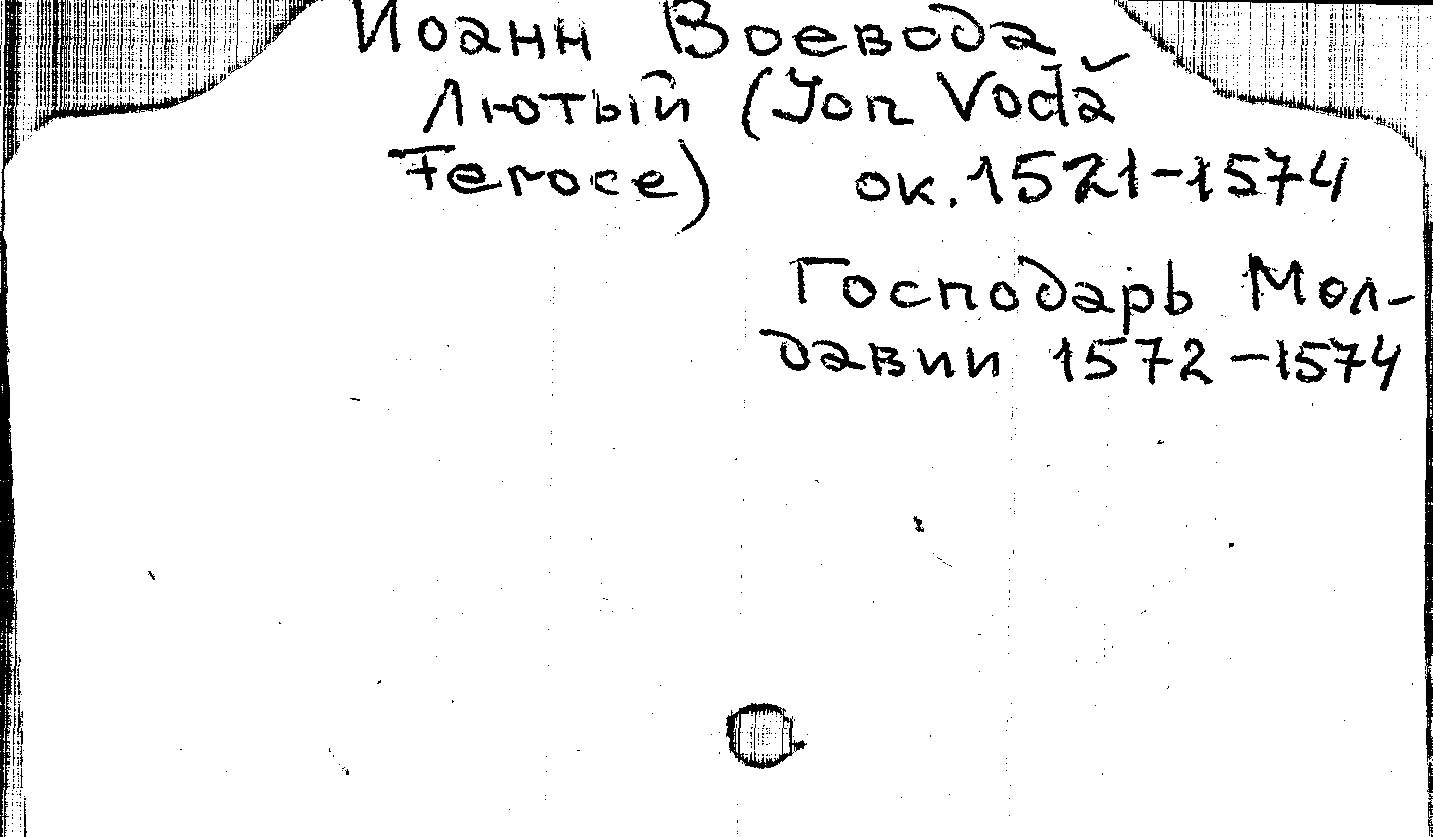 Иоанн Воевода
Лютый (Jon Vodă
Feroce) ок. 1521-1574
Господарь Мол-
давии 1572-1574